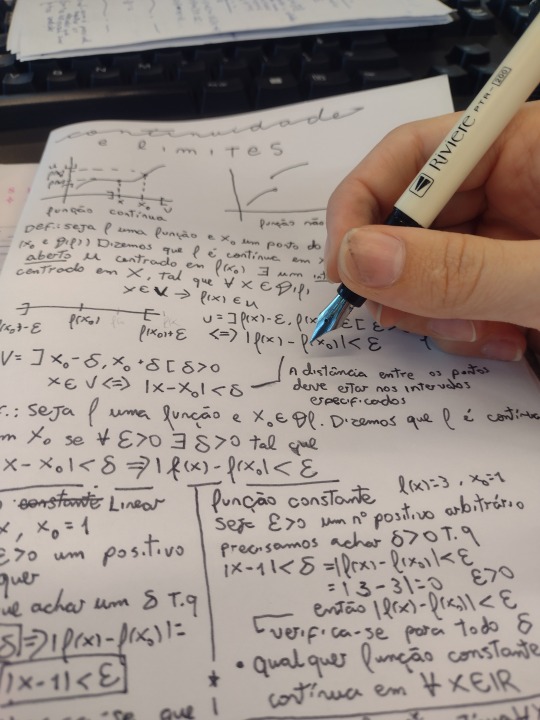 continuidade
e limites
função contínua
função não
Def: seja f uma função e x₀ um ponto do
(x₀ ∈ D(f)) Dizemos que f é contínua em
aberto u centrado em f(x₀) ∃ um
centrado em x, tal que ∀ x ∈ D(f),
x ∈ V → f(x) ∈ u
f(x₀)
f(x₀)+ε
<=> |f(x) - f(x₀)| < ε
V = ]x₀-δ, x₀+δ[ δ>0
x ∈ V <=> |x-x₀| < δ
A distância entre os pontos
deve estar nos intervalos
especificados
seja f uma função e x₀ ∈ D(f). Dizemos que f é contínua
x₀ se ∀ ε>0 ∃ δ>0 tal que
x-x₀|<δ => |f(x)-f(x₀)|<ε
constante Linear
x, x₀ = 1
ε>0 um positivo
quer
achar um δ T.q
δ => |f(x)-f(x₀)| =
|x-1|<ε
função constante f(x)=3, x₀=1
seja ε>0 um nº positivo arbitrário
precisamos achar δ>0 T.q
|x-1|<δ = |f(x)-f(x₀)|<ε
= |3-3|=0 ε>0
então |f(x)-f(x₀)|<ε
verifica-se para todo δ
• qualquer função constante
contínua em ∀ x∈IR
que
RIVIERE PTR-200